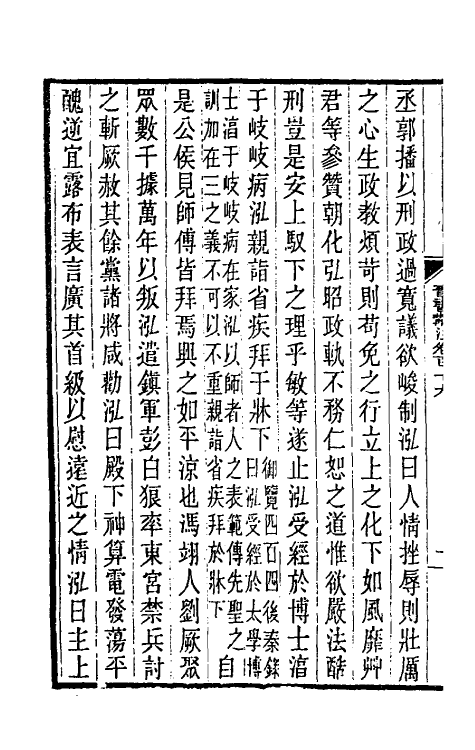 晉書斠注卷百十九
丞郭播以刑政過寬議欲峻制泓曰人情挫辱則壯厲
之心生政教煩苛則苟免之行立上之化下如風靡艸
君等參贊朝化弘昭政軌不務仁恕之道惟欲嚴法酷
刑豈是安上馭下之理乎敏等遂止泓受經於博士湻
于岐岐病泓親詣省疾拜于牀下御覽四百四後秦錄
曰泓受經於太學博
士湻于岐岐病在家泓以師者人之表範傳先聖之
訓加在三之義不可以不重親詣省疾拜於牀下自
是公侯見師傅皆拜焉興之如平涼也馮翊人劉厥聚
眾數千據萬年以叛泓遣鎮軍彭白狼率東宮禁兵討
之斬厥赦其餘黨諸將咸勸泓曰殿下神算電發蕩平
醜逆宜露布表言廣其首級以慰遠近之情泓曰主上